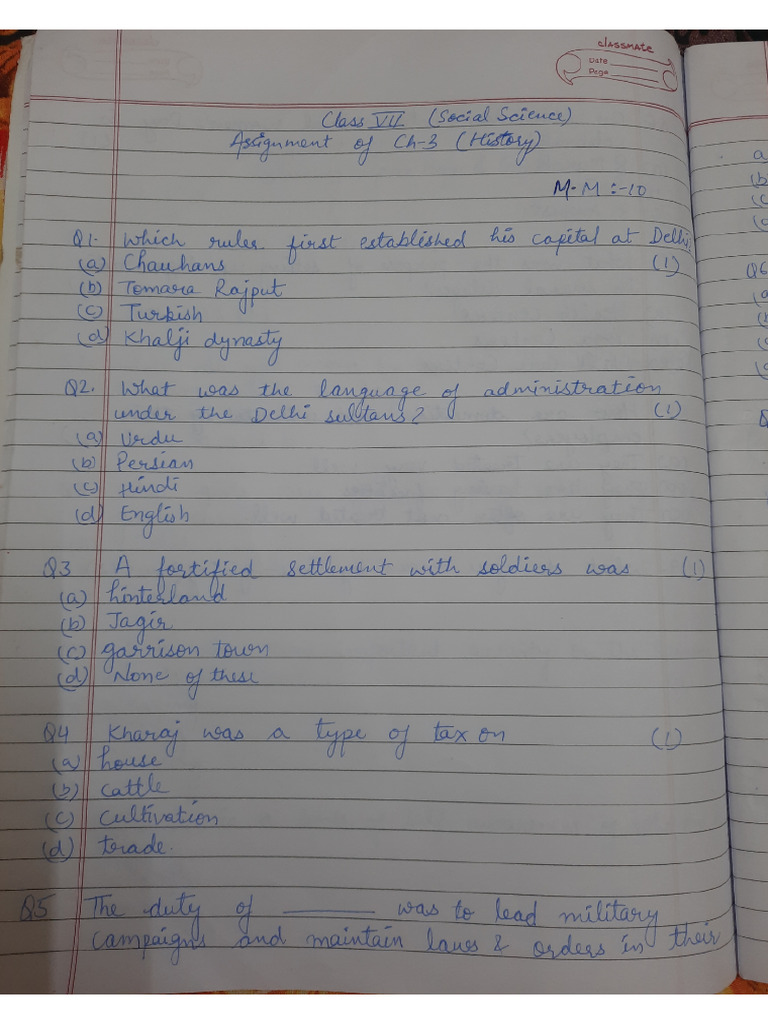 classmate
Date
Page
Class VII (Social Science)
Assignment of Ch-3 (History)
M.M :-10
Q1. Which ruler first established his capital at Delhi
(a) Chauhans (1)
(b) Tomara Rajput
(c) Turkish
(d) Khalji dynasty
Q2. What was the language of administration
under the Delhi sultans? (1)
(a) Urdu
(b) Persian
(c) Hindi
(d) English
Q3 A fortified settlement with soldiers was (1)
(a) hinterland
(b) Jagir
(c) garrison town
(d) None of these
Q4 Kharaj was a type of tax on (1)
(a) house
(b) cattle
(c) cultivation
(d) trade.
Q5 The duty of ______ was to lead military
campaigns and maintain laws & orders in their
a
(b
(c
Q6